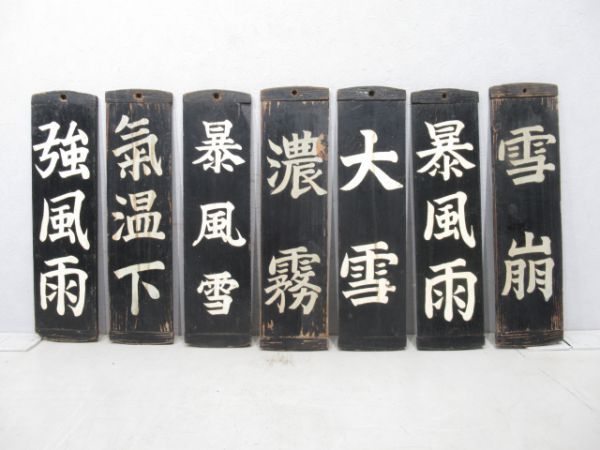 強風雨
氣温下
暴風雪
濃霧
大雪
暴風雨
雪崩